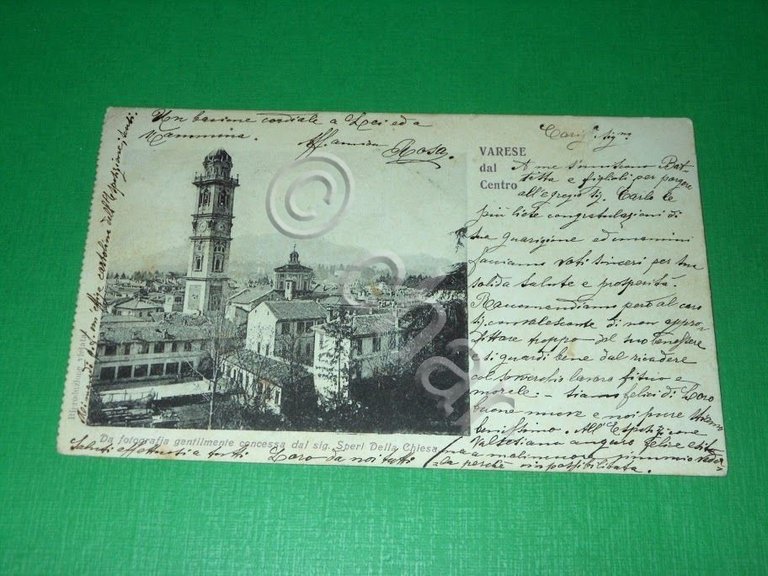 Un bacione cordiale a Lei ed a
Mammina.
Aff. amica Rosa.
VARESE
dal
Centro
Carig. Sig.na
A me s'uniscono Bat-
tista e figlioli per porgere
all'egregio Sig. Carlo le
più liete congratulazioni di
sua guarigione ed unanimi
facciamo voti sinceri per sua
solida salute e prosperità.
Raccomandiamo però al caro
Sig. convalescente di non appro-
fittare troppo del suo benessere
e si guardi bene dal ricadere
col soverchio lavoro fisico e
morale. - Siamo felici di Loro
buone nuove e noi pure stiamo
benissimo. All'Esposizione
Valtellinese auguro felice esito
ma a malincuore
la perchè impossibilitata.
Da fotografia gentilmente concessa dal sig. Speri Della Chiesa
Saluti affettuosi a tutti Loro da noi tutti
cartolina dell'Esposizione
Riproduzione vietata
© Mar